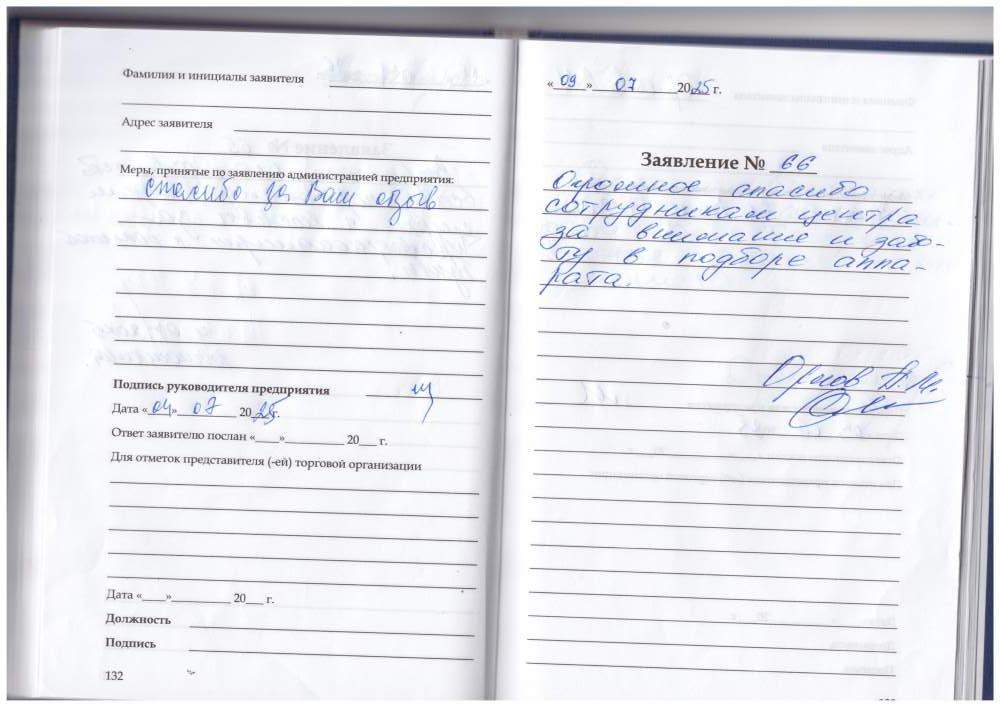 Фамилия и инициалы заявителе
Адрес заявителя
Меры, принятые по заявлению администрацией предприятия:
спасибо за Ваш отзыв
Подпись руководителя предприятия
Дата «04» 07 2025г.
Ответ заявителю послан «____»__________ 20___ г.
Для отметок представителя (-ей) торговой организации
Дата «____»__________ 20___ г.
Должность
Подпись
132
«09» 07 2025 г.
Заявление № 66
Огромное спасибо
сотрудникам центра
за внимание и забо-
ту в подборе аппа-
рата.
Орлов В.М.